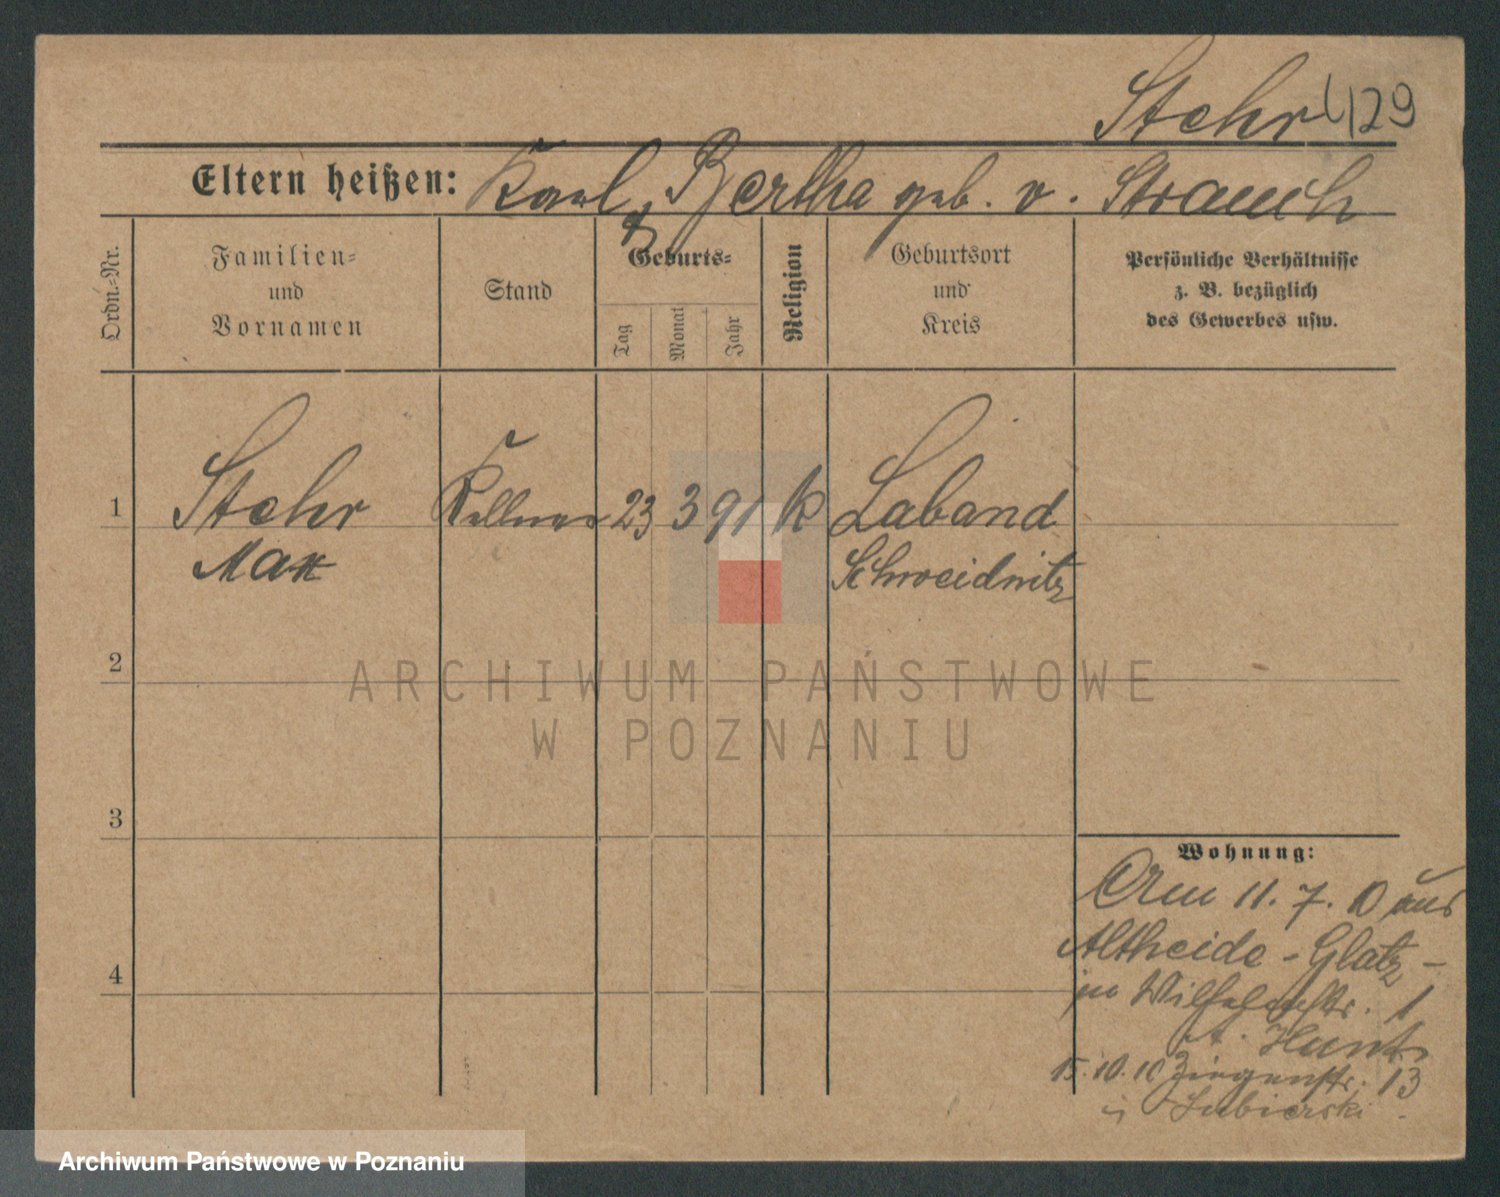 Stehr 129
Eltern heißen: Karl, Bertha geb. v. Strauch
Ordn.-Nr.
Familien- und Vornamen
Stand
Geburts-
Tag
Monat
Jahr
Religion
Geburtsort und Kreis
Persönliche Verhältnisse
z. B. bezüglich
des Gewerbes usw.
1 Stehr Kellner 23 3 91 k Laband
Max Schweidnitz
2
ARCHIWUM PAŃSTWOWE
W POZNANIU
3
Wohnung:
Am 11. 7. 10 aus
Altheide - Glatz -
in Wilhelmstr. 1
4
b. Hunt
15.10.10 Ziegenstr. 13
Lubierski
Archiwum Państwowe w Poznaniu